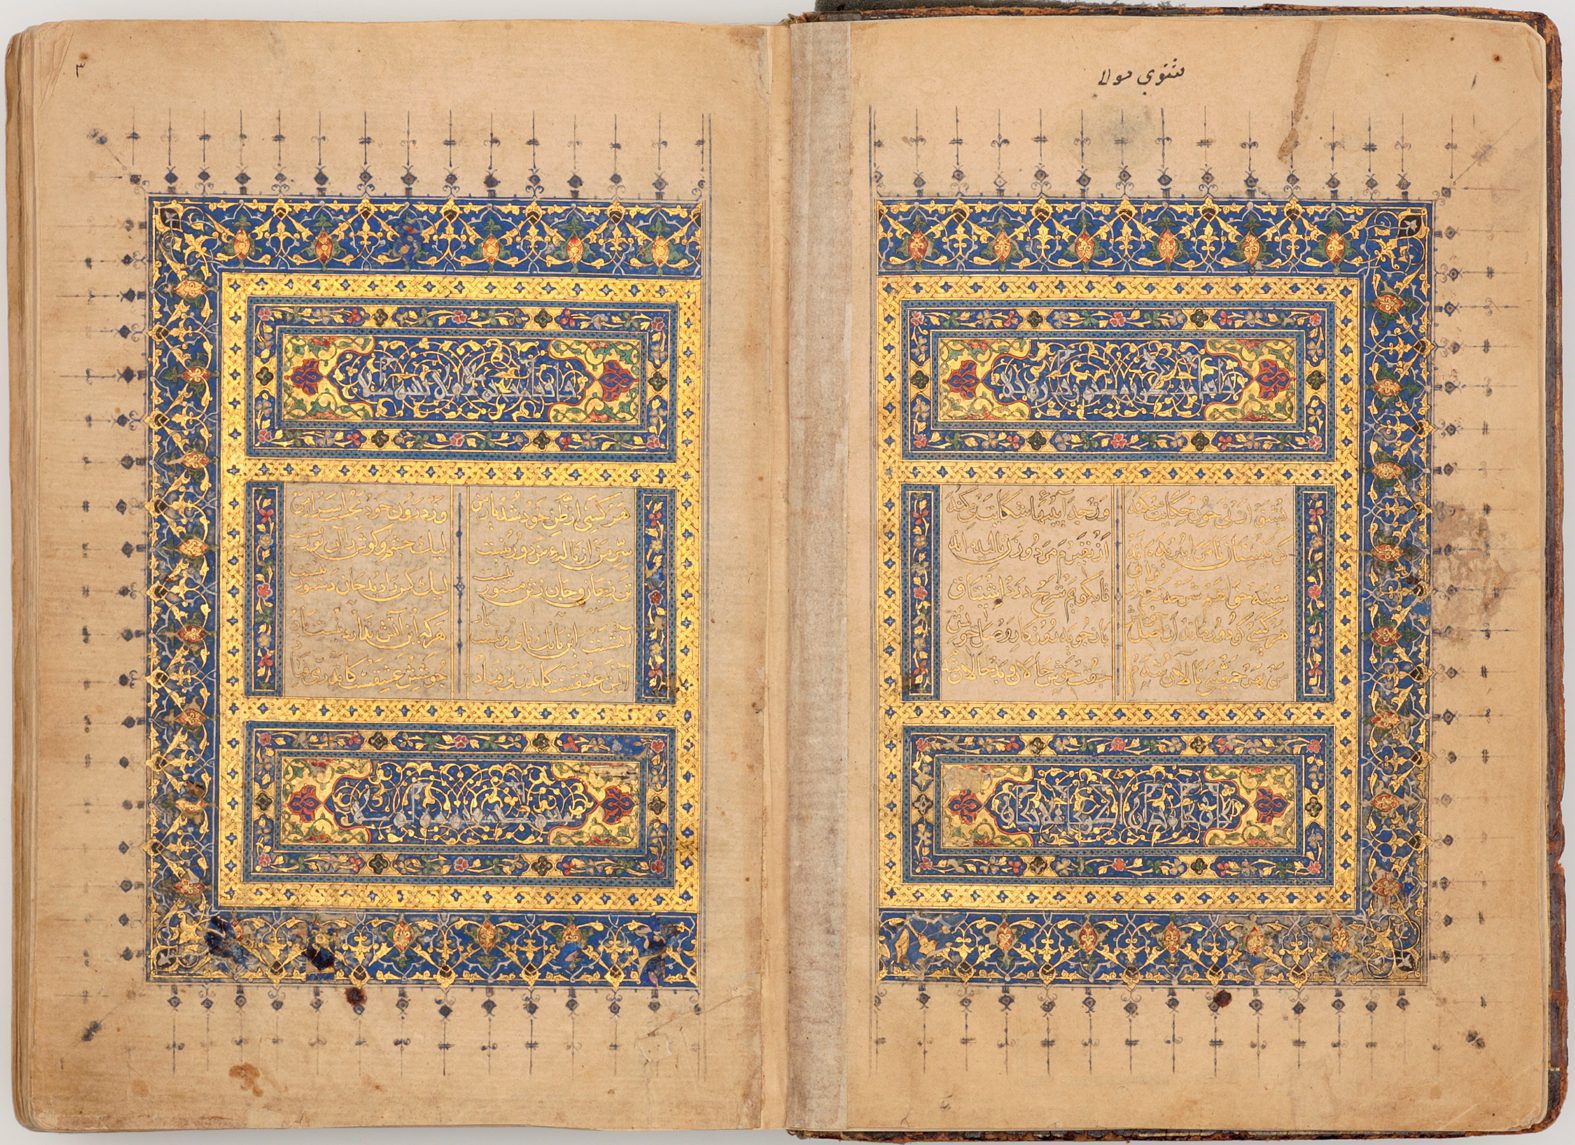 مثنوي مولا
بشنو از نی چون حکایت میکند وز جداییها شکایت میکند
کز نیستان تا مرا ببریده اند از نفیرم مرد و زن نالیده اند
سینه خواهم شرحه شرحه از فراق تا بگویم شرح درد اشتیاق
هر کسی کو دور ماند از اصل خویش باز جوید روزگار وصل خویش
من بهر جمعیتی نالان شدم جفت خوش حالان و بد حالان شدم
٣
هر کسی از ظن خود شد یار من وز درون نجست اسرار من
سر من از ناله من دور نیست لیک چشم و گوش را آن نور نیست
تن ز جان و جان ز تن مستور نیست لیک کس را دید جان دستور نیست
آتشست این بانگ نای و نیست باد هر که این آتش ندارد نیست باد
آتش عشقست کاندر نی فتاد جوشش عشقست کاندر می فتاد